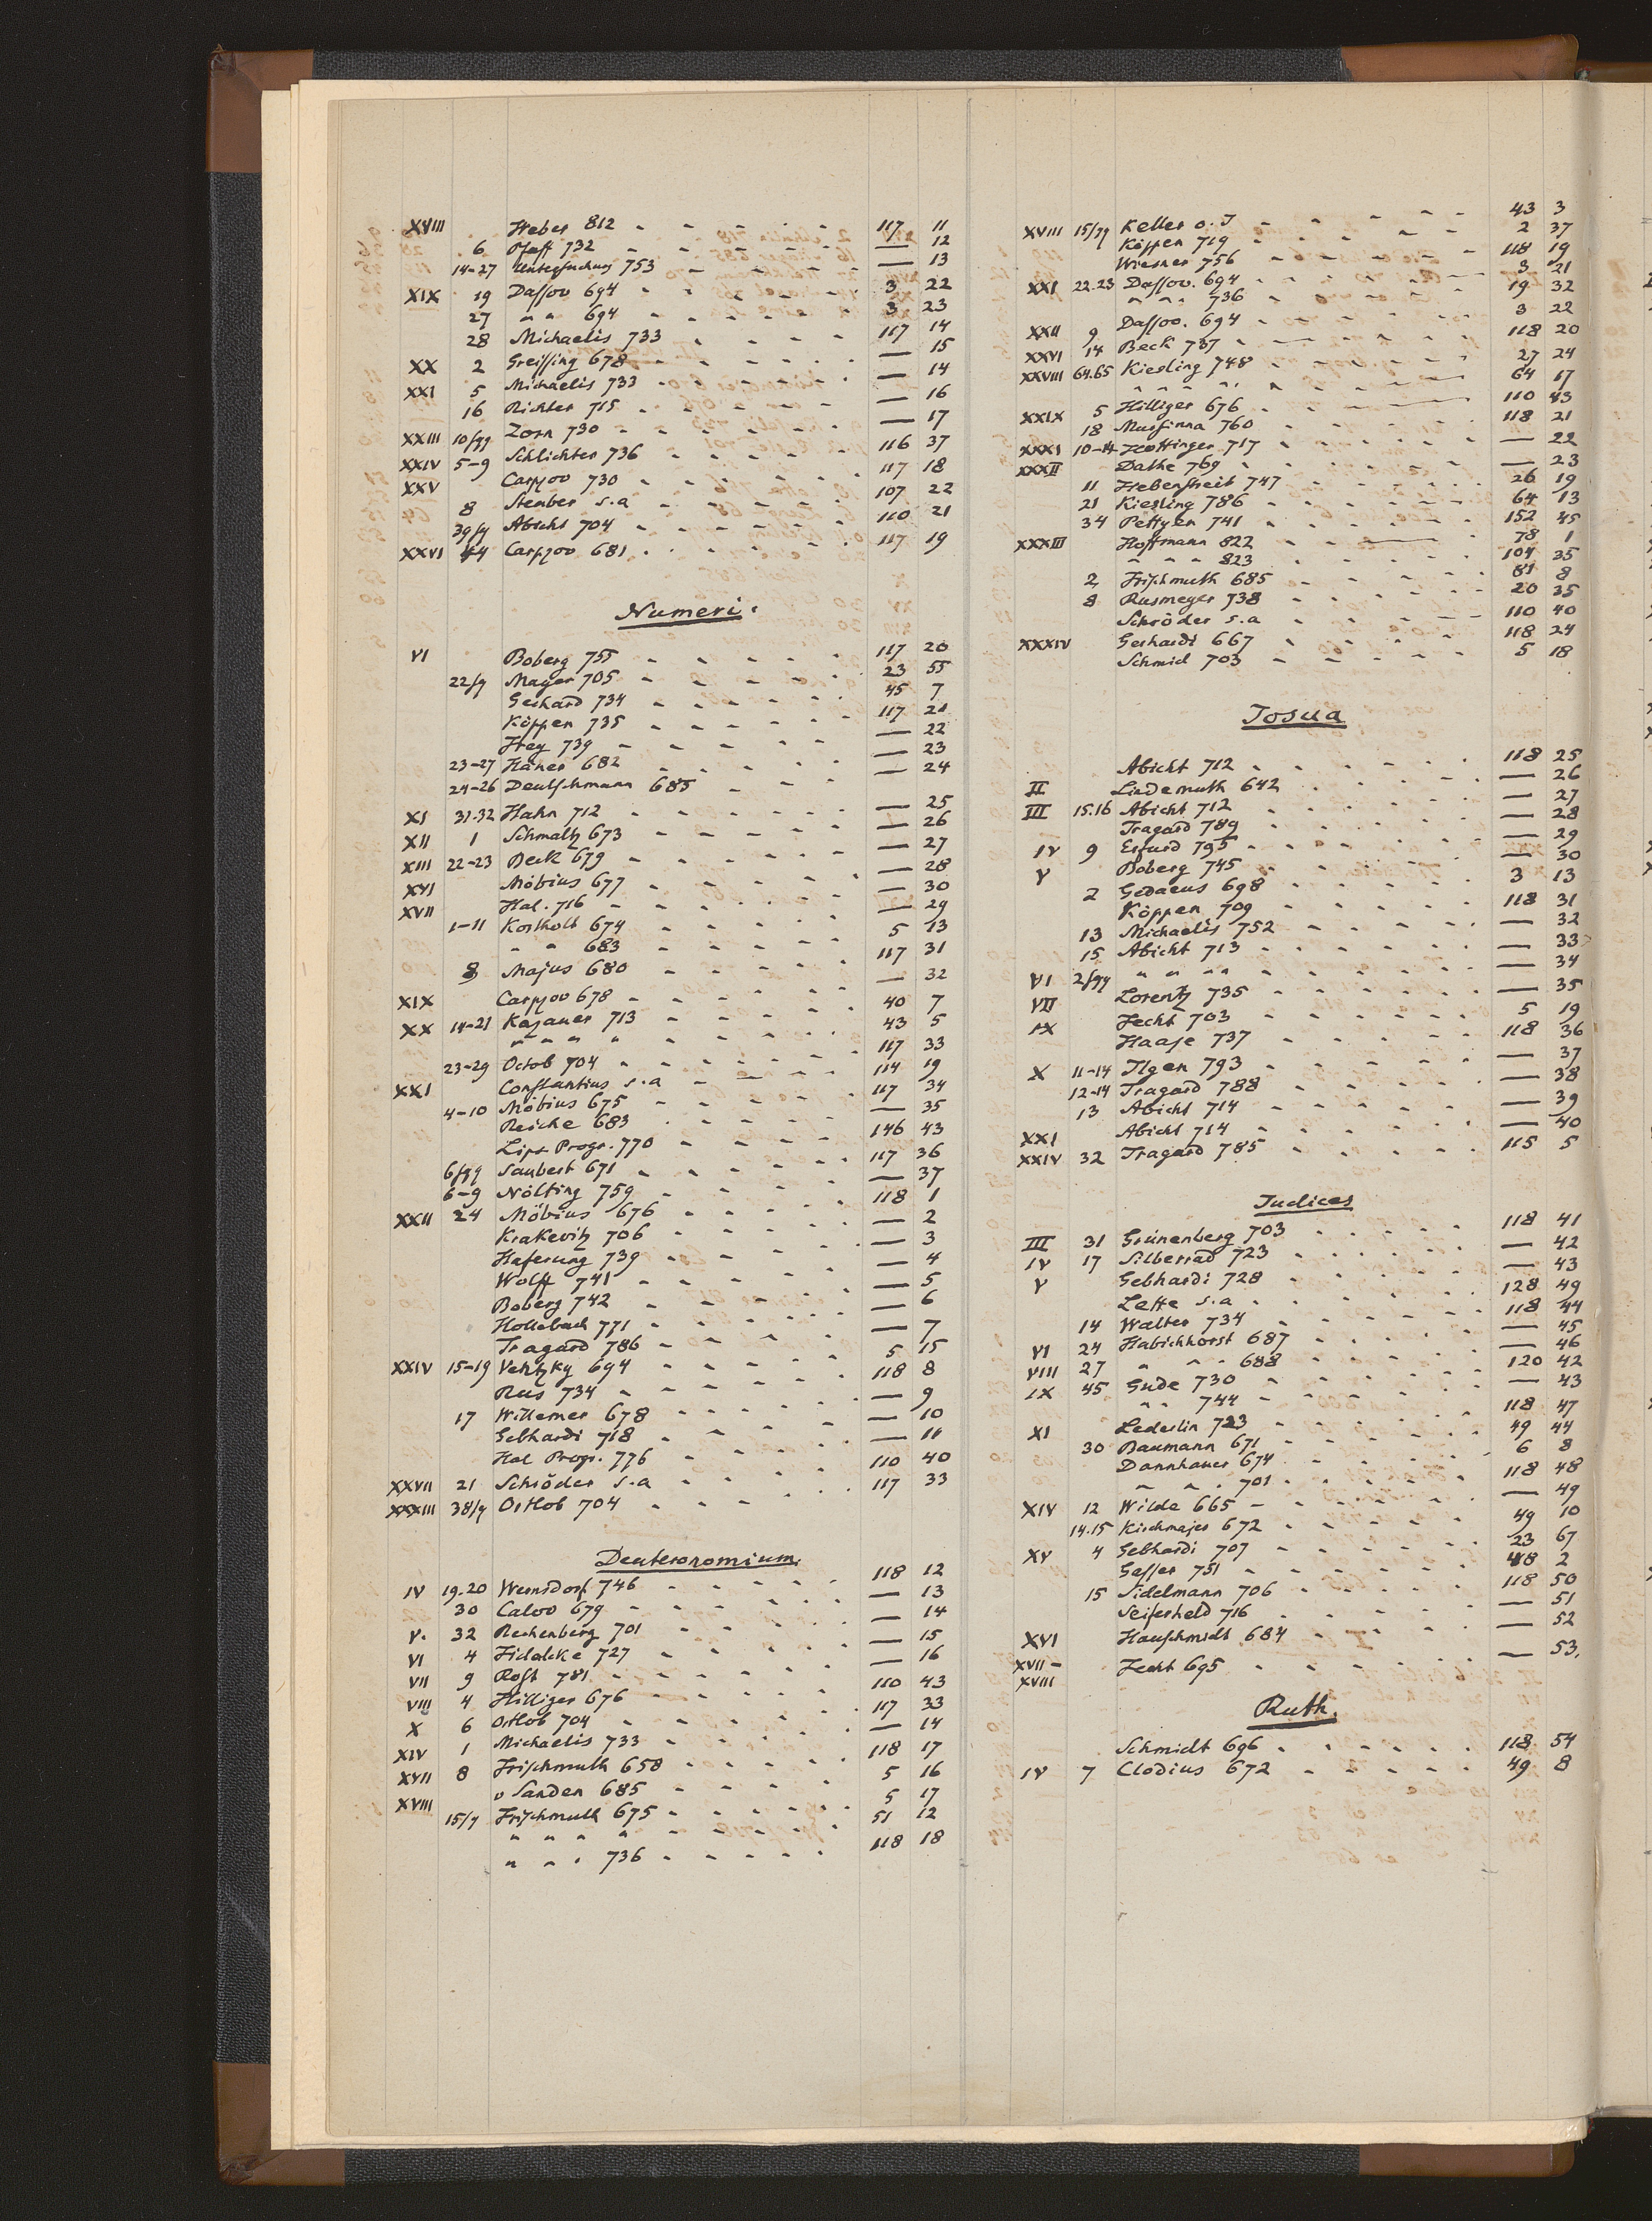 XVIII Heber 812 - - - - - 117 11
6 Pfaff 732 - - - - - — 12
14-27 Untersuchung 753 - - - — 13
XIX 19 Dassov 694 - - - - 3 22
27 " " 694 - - - - 3 23
28 Michaelis 733 - - - - 117 14
XX 2 Greissing 678 - - - - — 15
XXI 5 Michaelis 733 - - - - — 14
16 Richter 715 - - - - — 16
XXIII 10/qq Zorn 730 - - - - — 17
XXIV 5-9 Schlichter 736 - - - - 116 37
XXV Carpzov 730 - - - - 117 18
8 Stenber s.a - - - - 107 22
39/q Abicht 704 - - - - 110 21
XXVI 44 Carpzov 681 - - - - 117 19
Numeri.
VI Boberg 755 - - - - 117 20
22/q Mayer 705 - - - - 23 55
Gerhard 734 - - - - 45 7
Köppen 735 - - - - 117 21
Hey 739 - - - - — 22
23-27 Haner 682 - - - - — 23
24-26 Deutschmann 685 - - — 24
XI 31.32 Hahn 712 - - - - — 25
XII 1 Schmaltz 673 - - - - — 26
XIII 22-23 Beck 679 - - - - — 27
XVI Möbius 677 - - - - — 28
XVII Hal. 716 - - - - — 30
1-11 Kortholt 674 - - - - — 29
" " 683 - - - - 5 13
8 Majus 680 - - - - 117 31
XIX Carpzov 678 - - - - — 32
XX 14-21 Kazauer 713 - - - - 40 7
" " " " - - - - 43 5
23-29 Octob 704 - - - - 117 33
XXI Constantius s.a - - - - 114 19
4-10 Möbius 675 - - - - 117 34
Reiche 683 - - - - — 35
Lips Progr. 770 - - - - 146 43
6/qq Saubert 671 - - - - 117 36
6-9 Nölting 759 - - - - — 37
XXII 24 Möbius 676 - - - - 118 1
Krakevitz 706 - - - - — 2
Haferung 739 - - - - — 3
Wolff 741 - - - - — 4
Boberg 742 - - - - — 5
Hollebach 771 - - - - — 6
Tragard 786 - - - - — 7
XXIV 15-19 Vehtzky 694 - - - - 5 15
Rus 734 - - - - 118 8
17 Willemer 678 - - - - — 9
Gebhardi 718 - - - - — 10
Hal Progr. 776 - - - - — 11
XXVII 21 Schröder s.a - - - - 110 40
XXXIII 38/q Ortlob 704 - - - - 117 33
Deuteronomium.
IV 19.20 Wernsdorf 746 - - - - 118 12
30 Calov 679 - - - - — 13
V. 32 Rechenberg 701 - - - - — 14
VI 4 Fidalcke 727 - - - - — 15
VII 9 Rost 781 - - - - — 16
VIII 4 Hilliger 676 - - - - 110 43
X 6 Ortlob 704 - - - - 117 33
XIV 1 Michaelis 733 - - - - — 14
XVII 8 Frischmuth 658 - - - - 118 17
XVIII v Sanden 685 - - - - 5 16
15/q Frischmuth 675 - - - - 5 17
" " " " - - - - 51 12
" " " 736 - - - - 118 18
XVIII 15/qq Keller o.J - - - - 43 3
Köppen 719 - - - - 2 37
Wiesner 756 - - - - 118 19
XXI 22.23 Dassov. 694 - - - - 3 21
" " " 736 - - - - 19 32
XXII 9 Dassov. 694 - - - - 3 22
XXVI 14 Beck 787 - - - - 118 20
XXVIII 64.65 Kiesling 748 - - - - 27 24
" " " " - - - - 64 17
XXIX 5 Hilliger 676 - - - - 110 43
18 Mursinna 760 - - - - 118 21
XXXI 10-14 Hottinger 717 - - - - — 22
XXXII Dathe 769 - - - - — 23
11 Hebenstreit 747 - - - - 26 19
21 Kiesling 786 - - - - 64 13
34 Pettyen 741 - - - - 152 45
XXXIII Hoffmann 822 - - - - 78 1
" " " 823 - - - - 104 35
2 Frischmuth 685 - - - - 81 8
8 Rusmeyer 738 - - - - 20 35
Schröder s.a - - - - 110 40
XXXIV Gerhardi 667 - - - - 118 24
Schmid 703 - - - - 5 18
Josua
Abicht 712 - - - - 118 25
II Lindemuth 642 - - - - — 26
III 15.16 Abicht 712 - - - - — 27
Tragard 789 - - - - — 28
IV 9 Erfurd 795 - - - - — 29
V Boberg 745 - - - - — 30
2 Gedaeus 698 - - - - 3 13
Köppen 709 - - - - 118 31
13 Michaelis 752 - - - - — 32
15 Abicht 713 - - - - — 33
VI 2/qq " " " " - - - - — 34
VII Lorentz 735 - - - - — 35
IX Fecht 703 - - - - 5 19
Haase 737 - - - - 118 36
X 11-14 Ilgen 793 - - - - — 37
12-14 Tragard 788 - - - - — 38
13 Abicht 714 - - - - — 39
XXI Abicht 714 - - - - — 40
XXIV 32 Tragard 785 - - - - 115 5
Iudices
III 31 Grünenberg 703 - - - - 118 41
IV 17 Silberrad 723 - - - - — 42
V Gebhardi 728 - - - - — 43
Lette s.a - - - - 128 49
14 Walter 734 - - - - 118 44
VI 24 Habichhorst 687 - - - - — 45
VIII 27 " " " 688 - - - - — 46
IX 45 Gude 730 - - - - 120 42
" " 744 - - - - — 43
XI Lederlin 723 - - - - 118 47
30 Baumann 671 - - - - 49 44
Dannhauer 674 - - - - 6 8
" " " 701 - - - - 118 48
XIV 12 Wilde 665 - - - - — 49
14.15 Kirchmajer 672 - - - - 49 10
XV 4 Gebhardi 707 - - - - 23 67
Gesser 751 - - - - 48 2
15 Sidelmann 706 - - - - 118 50
Seiferheld 716 - - - - — 51
XVI Hauschmidt 684 - - - - — 52
XVII - Fecht 695 - - - - — 53.
XVIII
Ruth.
Schmidt 696 - - - - 118 54
IV 7 Clodius 672 - - - - 49 8